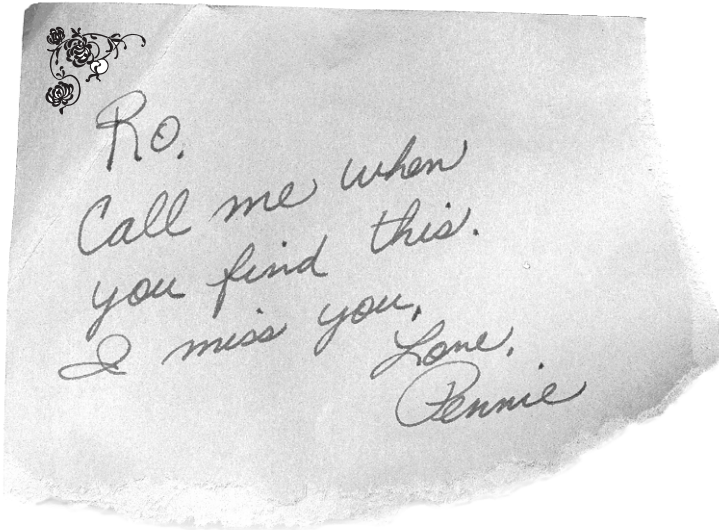 Ro,
Call me when
you find this.
I miss you,
Love,
Pennie